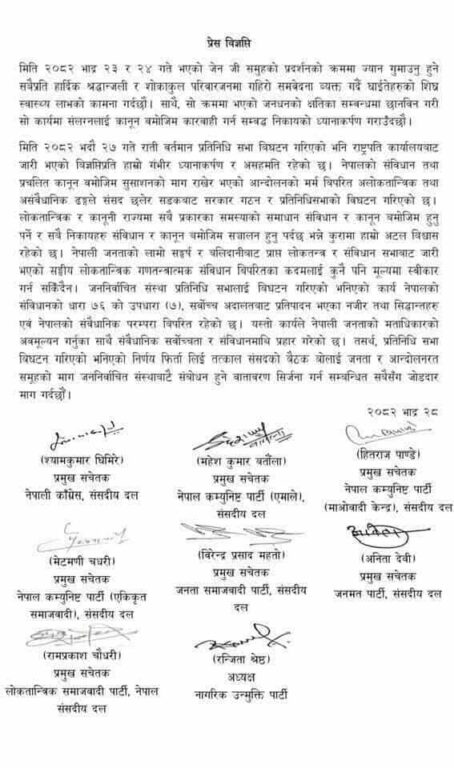 प्रेस विज्ञप्ति
मिति २०८२ भाद्र २३ र २४ गते भएको जेन जी समुहको प्रदर्शनको क्रममा ज्यान गुमाउनु हुने
सबैप्रति हार्दिक श्रद्धान्जली र शोकाकुल परिवारजनमा गहिरो समवेदना व्यक्त गर्दै घाईतेहरुको शिघ्र
स्वास्थ्य लाभको कामना गर्दछौं। साथै, सो क्रममा भएको जनधनको क्षतिका सम्बन्धमा छानविन गरी
सो कार्यमा संलग्नलाई कानून वमोजिम कारवाही गर्न सम्वद्ध निकायको ध्यानाकर्षण गराउँदछौं।
मिति २०८२ भदौ २७ गते राती वर्तमान प्रतिनिधि सभा विघटन गरिएको भनि राष्ट्रपति कार्यालयबाट
जारी भएको विज्ञप्तिप्रति हाम्रो गंभीर ध्यानाकर्षण र असहमति रहेको छ। नेपालको संविधान तथा
प्रचलित कानून वमोजिम सुसाशनको माग राखेर भएको आन्दोलनको मर्म विपरित अलोकतान्त्रिक तथा
असंवैधानिक ढङ्गले संसद छलेर सडकबाट सरकार गठन र प्रतिनिधिसभाको विघटन गरिएको छ।
लोकतान्त्रिक र कानूनी राज्यमा सवै प्रकारका समस्याको समाधान संविधान र कानून वमोजिम हुनु
पर्ने र सबै निकायहरु संविधान र कानून वमोजिम सञ्चालन हुनु पर्दछ भन्ने कुरामा हाम्रो अटल विश्वास
रहेको छ। नेपाली जनताको लामो सङ्घर्ष र बलिदानीबाट प्राप्त लोकतन्त्र र संविधान सभाबाट जारी
भएको सङ्घीय लोकतान्त्रिक गणतन्त्रात्मक संविधान विपरितका कदमलाई कुनै पनि मूल्यमा स्वीकार
गर्न सकिँदैन। जननिर्वाचित संस्था प्रतिनिधि सभालाई विघटन गरिएको भनिएको कार्य नेपालको
संविधानको धारा ७६ को उपधारा (७), सर्वोच्च अदालतबाट प्रतिपादन भएका नजीर तथा सिद्धान्तहरु
एवं नेपालको संवैधानिक परम्परा विपरित रहेको छ। यस्तो कार्यले नेपाली जनताको मताधिकारको
अवमूल्यन गर्नुका साथै संवैधानिक सर्वोच्चता र संविधानमाथि प्रहार गरेको छ। तसर्थ, प्रतिनिधि सभा
विघटन गरिएको भनिएको निर्णय फिर्ता लिई तत्काल संसदको बैठक बोलाई जनता र आन्दोलनरत
समुहको माग जननिर्वाचित संस्थाबाटै संबोधन हुने वातावरण सिर्जना गर्न सम्बन्धित सबैसँग जोडदार
माग गर्दछौं।
२०८२ भाद्र २८
(श्यामकुमार घिमिरे)
प्रमुख सचेतक
नेपाली काँग्रेस, संसदीय दल
(महेश कुमार बर्तौला)
प्रमुख सचेतक
नेपाल कम्युनिष्ट पार्टी (एमाले),
संसदीय दल
(हितराज पाण्डे)
प्रमुख सचेतक
नेपाल कम्युनिष्ट पार्टी
(माओवादी केन्द्र), संसदीय दल
(मेटमणी चौधरी)
प्रमुख सचेतक
नेपाल कम्युनिष्ट पार्टी (एकिकृत
समाजवादी), संसदीय दल
(विरेन्द्र प्रसाद महतो)
प्रमुख सचेतक
जनता समाजवादी पार्टी, संसदीय
दल
(अनिता देवी)
प्रमुख सचेतक
जनमत पार्टी, संसदीय दल
(रामप्रकाश चौधरी)
प्रमुख सचेतक
लोकतान्त्रिक समाजवादी पार्टी, नेपाल
संसदीय दल
(रन्जिता श्रेष्ठ)
अध्यक्ष
नागरिक उन्मुक्ति पार्टी